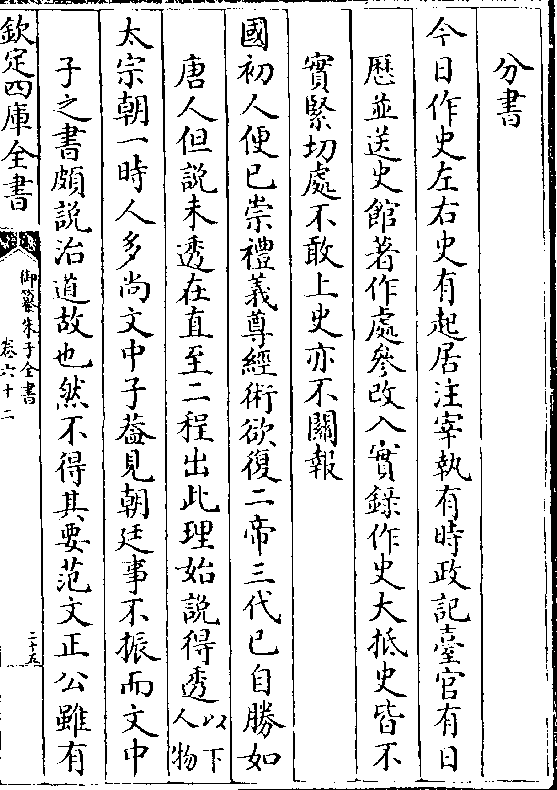 分書
今日作史左右史有起居注宰執有時政記臺官有日
厯並送史館著作處參改入實錄作史大抵史皆不
實緊切處不敢上史亦不關報
國初人便已崇禮義尊經術欲復二帝三代已自勝如
唐人但說未透在直至二程出此理始說得透以下人物
太宗朝一時人多尚文中子葢見朝廷事不振而文中
子之書頗說治道故也然不得其要范文正公雖有
欽定四庫全書
御纂朱子全書
卷六十二
二十五